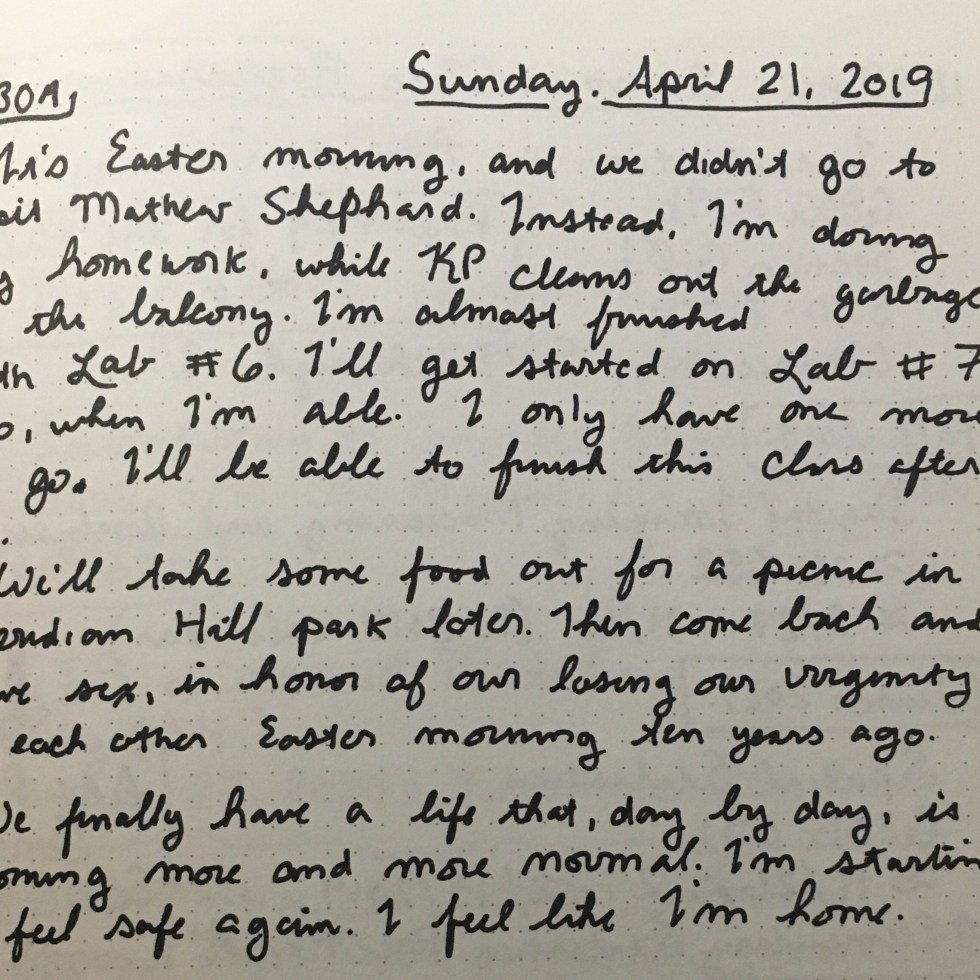 30A, Sunday. April 21, 2019
It's Easter morning, and we didn't go to
Mathew Shephard. Instead, I'm doing
homework, while KP cleans out the garbage
the balcony. I'm almost finished
th Lab #6. I'll get started on Lab #7
o, when I'm able. I only have one more
go. I'll be able to finish this class after
We'll take some food out for a picnic in
eridian Hill park later. Then come back and
ve sex, in honor of our losing our virginity
each other Easter morning ten years ago.
We finally have a life that, day by day, is
oming more and more normal. I'm startin
feel safe again. I feel like I'm home.